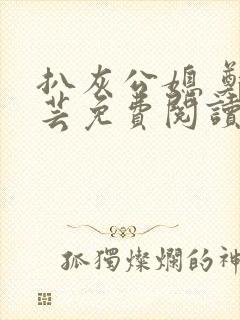 扒灰公媳 鄭
芸免費閱讀
孤獨燦爛的神